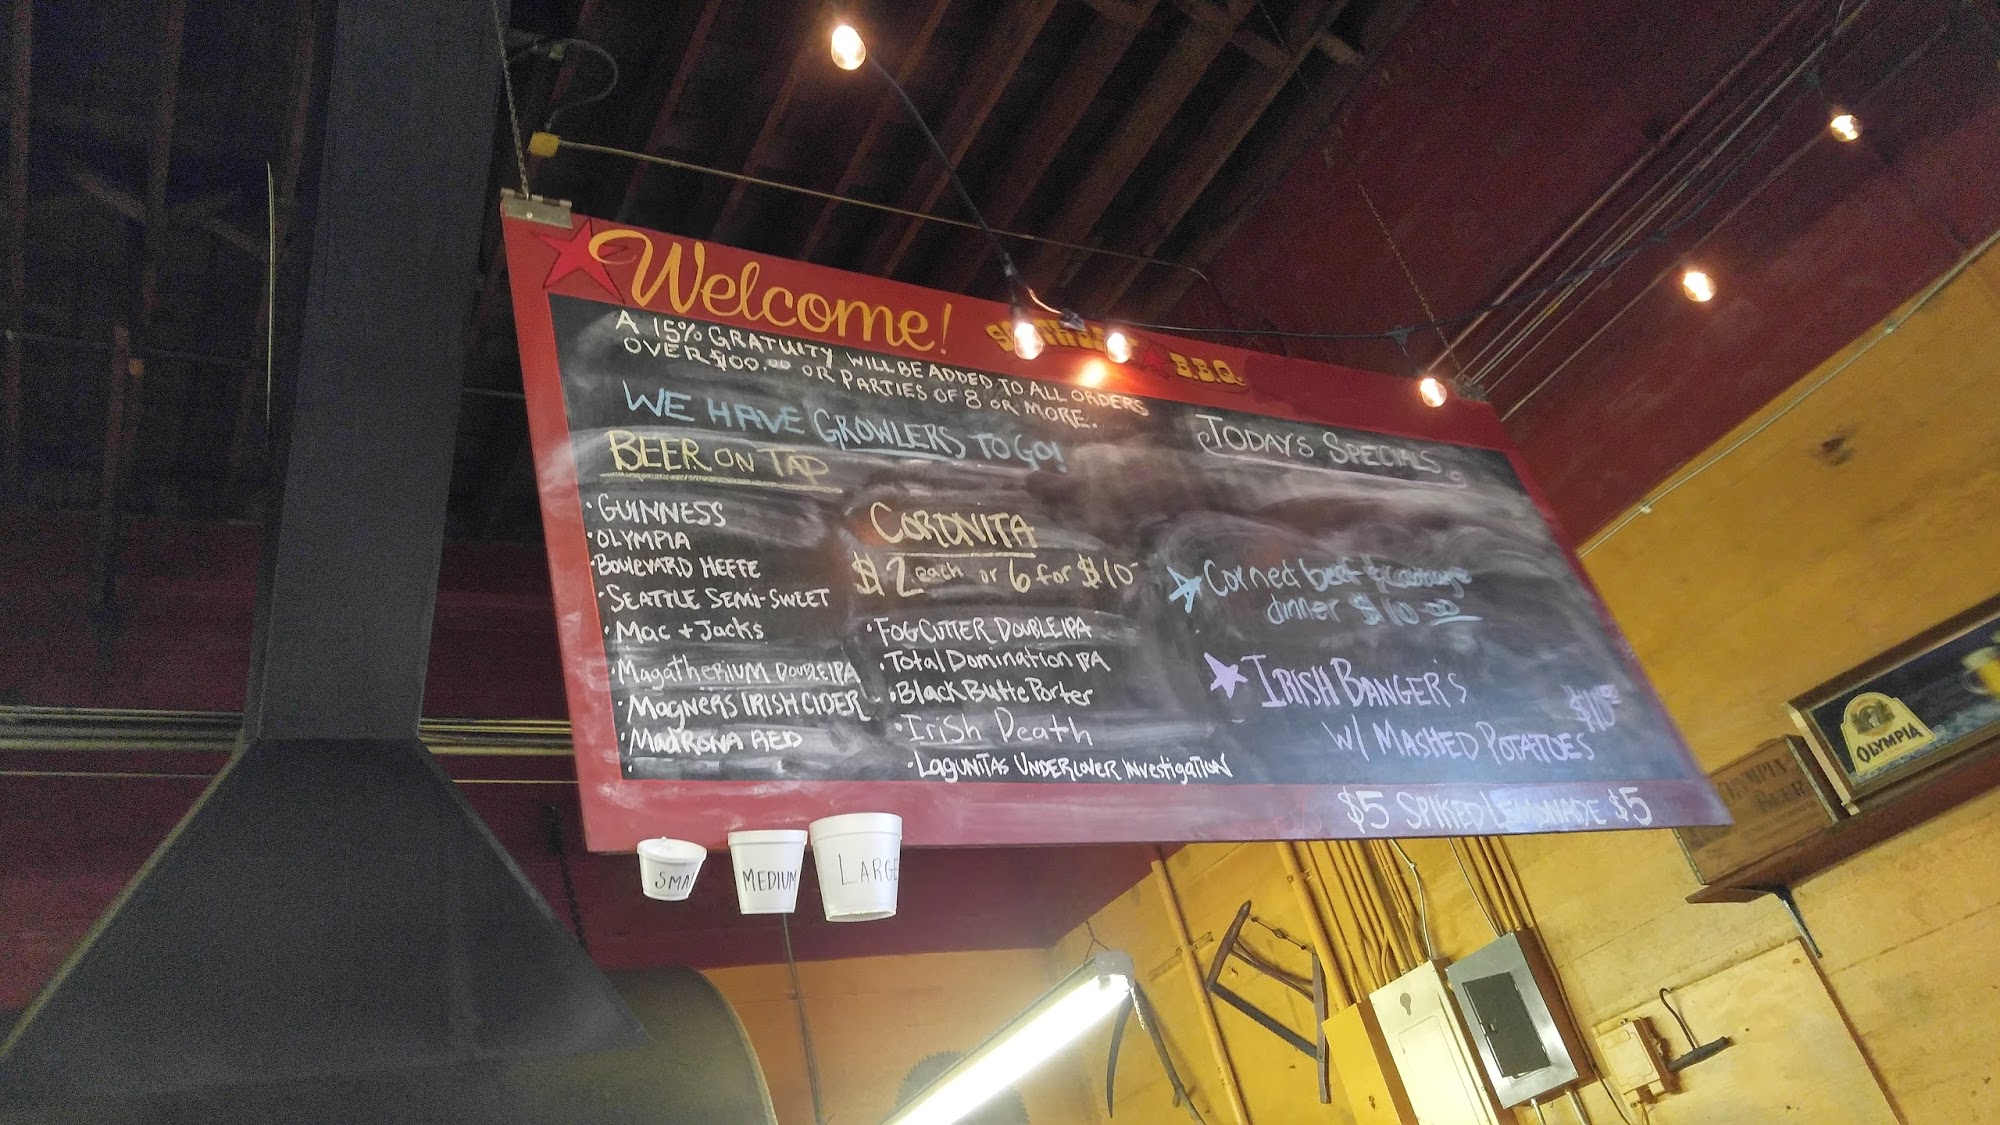 Welcome!
B.B.Q.
A 15% GRATUITY WILL BE ADDED TO ALL ORDERS
OVER $100.00 OR PARTIES OF 8 OR MORE.
WE HAVE GROWLERS TO GO!
BEER ON TAP
• GUINNESS
• OLYMPIA
• BOULEVARD HEFFE
• SEATTLE SEMI-SWEET
• MAC + JACKS
• MAGATHERIUM DOUBLE IPA
• MAGNERS IRISH CIDER
• MADRONA RED
•
CORONITA
$2 each or 6 for $10
• FOGCUTTER DOUBLE IPA
• Total Domination IPA
• Black Butte Porter
• Irish Death
• LAGUNITAS UNDERCOVER INVESTIGATION
TODAYS SPECIALS
Corned beef & cabbage
dinner $10.00
IRISH BANGER'S $10
W/ MASHED POTATOES
$5 SPIKED LEMONADE $5
SMA
MEDIUM
LARGE
OLYMPIA
BEER